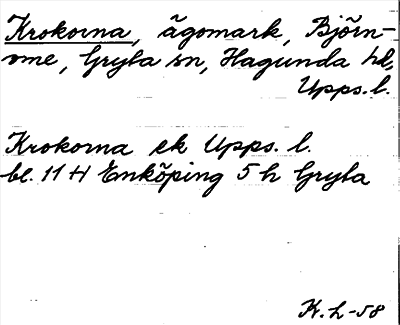 Krokorna, ägomark, Björn-
ome, Gryta sn, Hagunda hd,
Upps. l.
Krokorna ek Upps. l.
bl. 11 H Enköping 5 h Gryta
K. L-58